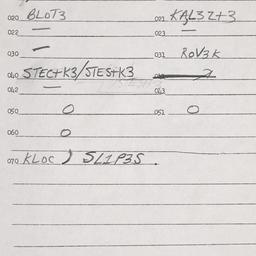 020 BLOT3 021 KAL3Zt3
022 — 023 —
030 — 031 ROV3K
040 STECtK3/STEStK3
042 — 043
050 O 051 O
060 O
070 KLOC ) SL1P3S .